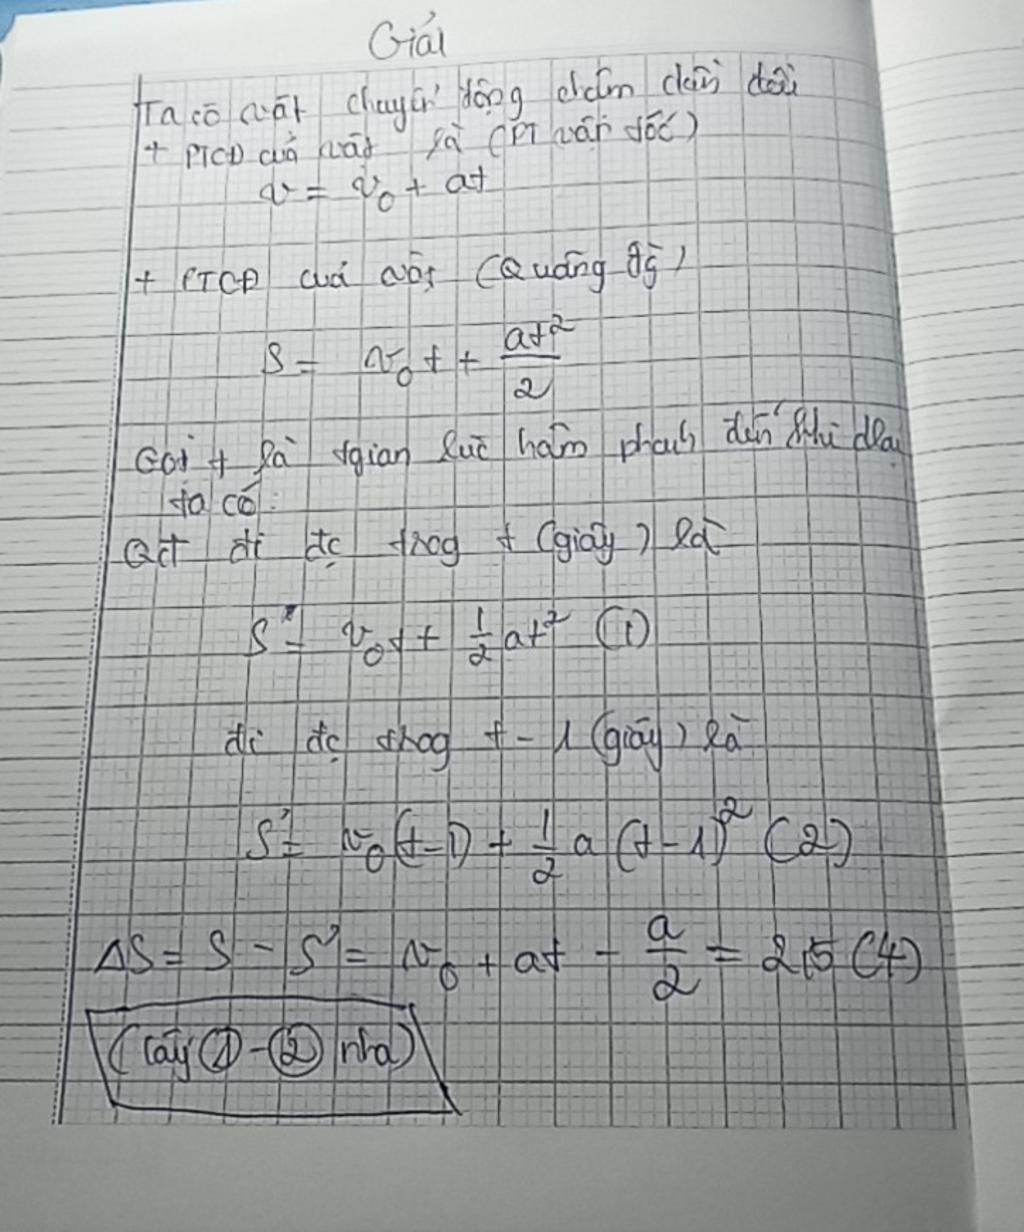 Giải
Ta có vật chuyển động chậm dần đều
+ PTCĐ của vật là (PT vận tốc)
v = v₀ + at
+ PTCĐ của vật (Quãng đg)
S = v₀t + at²/2
Gọi t là tgian lúc hãm phanh đến khi dlại
ta có:
Qđt đi đc trog t (giây) là
S = v₀t + 1/2 at² (1)
đi đc trog t - 1 (giây) là
S' = v₀(t-1) + 1/2 a (t-1)² (2)
ΔS = S - S' = v₀ + at - a/2 = 2,5 (4)
(Lấy ① - ② nha)